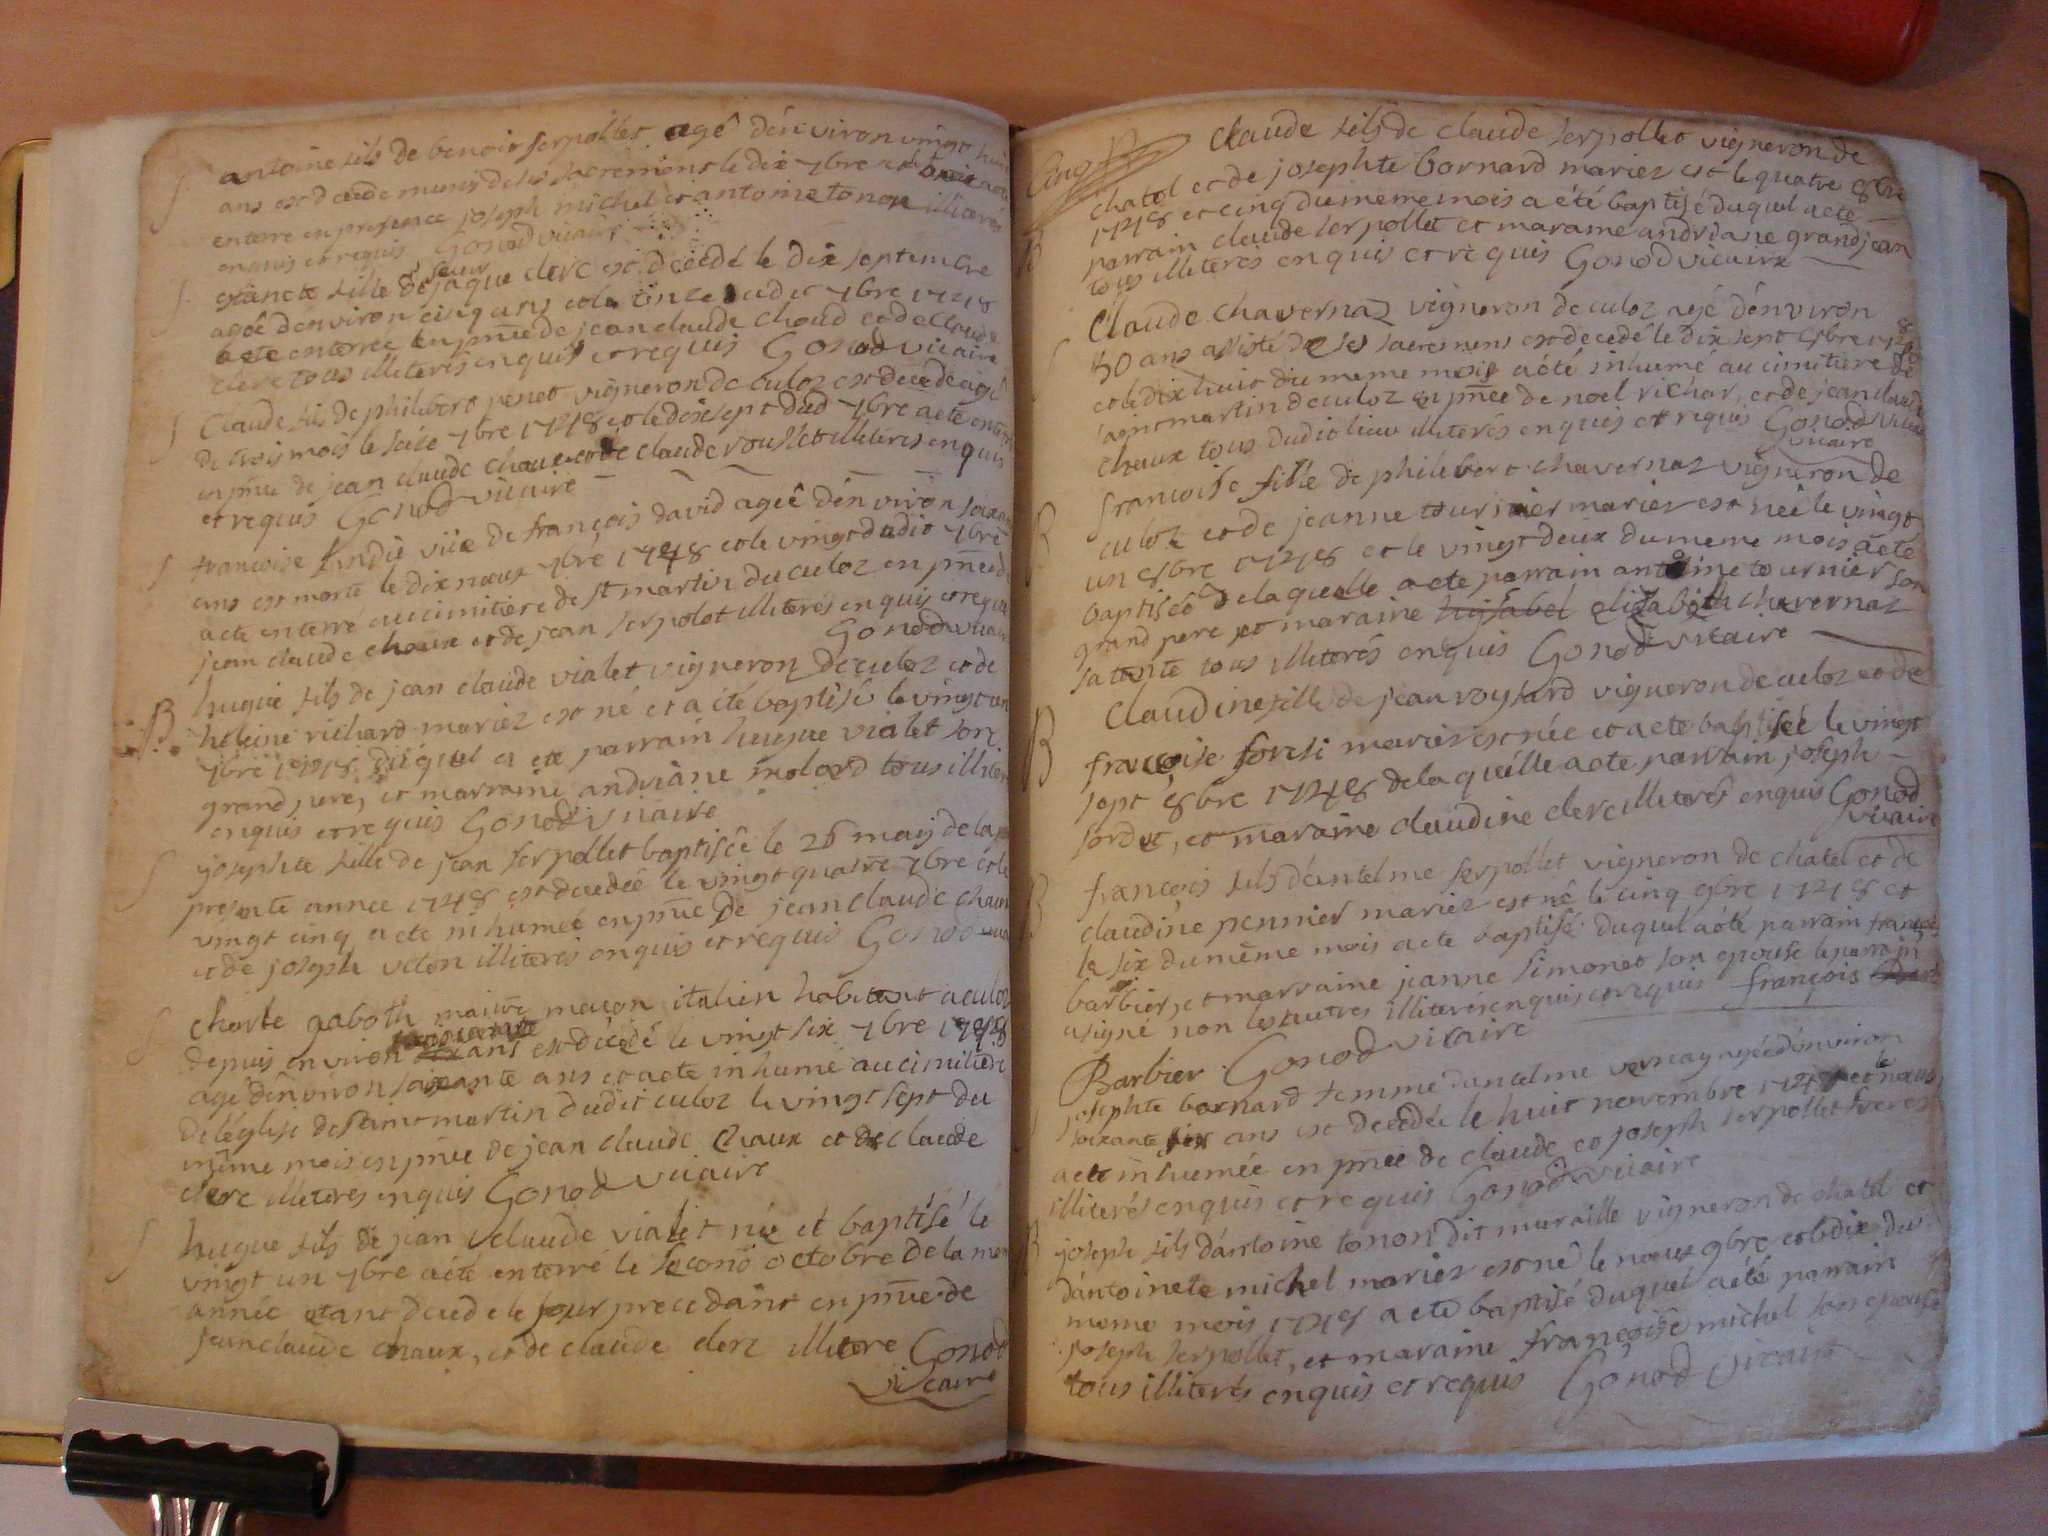 antoine fils de benoit serpollet agé dénviron vingt huit
ans est decedé munis de ses sacremens le dix 7bre et onze a eté
enterre en presence joseph michel et antoine tonon illiterés
enquis et requis Gonod vicaire
fille de jaque clerc est decedé le dix septembre
agée denviron cinq ans et le onze dudit 7bre 1748
a ete enterree en pnce de jean claude choud et de Claude
clerc tous illiterés enquis et requis Gonod vicaire
Claude fils de philibert penet vigneron de culoz est decedé agé
de trois mois le seize 7bre 1748 et le dix sept dud 7bre a ete enterré
en pnce de jean claude chaux et de claude rousset illiteres enquis
et requis Gonod vicaire
francoise vüe de françois david agée dénviron soixante
ans est morte le dix neuf 7bre 1748 et le vingt dudit 7bre
a eté enterré au cimitiere de st martin du culoz en pnce de
jean claude chaux et de jean serpolet illiterés enquis et requis
Gonod vicaire
B hugue fils de jean claude vialet vigneron de culoz et de
heleine richard mariez est né et a eté baptisé le vingt un
7bre 1748 duquel a eté parrain hugue vialet son
grand pere, et marraine andriane molard tous illiteres
enquis et requis Gonod vicaire
josephte fille de jean serpollet baptisée le 26 maij de la
presente annee 1748 est decedée le vingt quatre 7bre et le
vingt cinq a ete inhumée en pnce de jean claude chaux
et de joseph veton illiterés enquis et requis Gonod
charle gaboth maitre maçon italien habitant a culoz
depuis environ ans est décédé le vingt six 7bre 1748
agé dénviron soixante ans et a eté inhumé au cimitiere
de léglise de saint martin dudit culoz le vingt sept du
même mois en pnce de jean claude chaux et de claude
clerc illiteres enquis Gonod vicaire
hugue fils de jean claude vialet née et baptisé le
vingt un 7bre a eté enterré le second octobre de la meme
année etant decedé le jour precedant en pnce de
jean claude chaux, et de claude clerc illitere Gonod
vicaire
Cinq Claude fils de claude serpollet vigneron de
chatel et de josephte bornard mariez est le quatre 8bre
1748 et cinq du meme mois a été baptisé duquel a eté
B parrain claude serpollet et maraine andriane grandjean
tous illiterés enquis et requis Gonod vicaire
Claude chavernaz vigneron de culoz agé dénviron
50 ans assisté de ses sacremens est decedé le dix sept 8bre 1748
et le dix huit du meme mois a été inhumé au cimitiere de
saint martin de culoz en pnce de noel richar, et de jean claude
chaux tous dudit lieu illiterés enquis et requis Gonod vicaire
vicaire
francoise fille de philibert chavernaz vigneron de
B culoz et de jeanne tournier mariez est née le vingt
un 8bre 1748 et le vingt deux du meme mois a eté
baptisée de laquelle a ete parrain antoine tournier son
grand pere et maraine hisabel elizabeth chavernaz
sa tente tous illiterés enquis Gonod vicaire
Claudine fille de jean voysard vigneron de culoz et de
B françoise foresi mariez est née et a eté baptisée le vingt
sept 8bre 1748 de laquelle a ete parrain joseph
sordet, et maraine claudine clerc illiterés enquis Gonod
vicaire
B françois fils dántelme serpollet vigneron de chatel et de
claudine pennier mariez est né le cinq 9bre 1748 et
le six du même mois a eté baptisé duquel a eté parrain françois
barbier, et marraine jeanne simonet son epouse le parrain
a signé non les autres illiterés enquis et requis françois
Barbier Gonod vicaire
josephte bornard femme dantelme vernay agée dénviron
soixante six ans est decedée le huit novembre 1748 et le neuf
a eté inhumée en pnce de claude et joseph serpollet freres
illiterés enquis et requis Gonod vicaire
B joseph fils dántoine tonon dit muraille vigneron de chatel et
dántoinete michel mariez est né le neuf 9bre et le dix du
meme mois 1748 a eté baptisé duquel a été parrain
joseph serpollet, et maraine françoise michel son epouse
tous illiterés enquis et requis Gonod vicaire